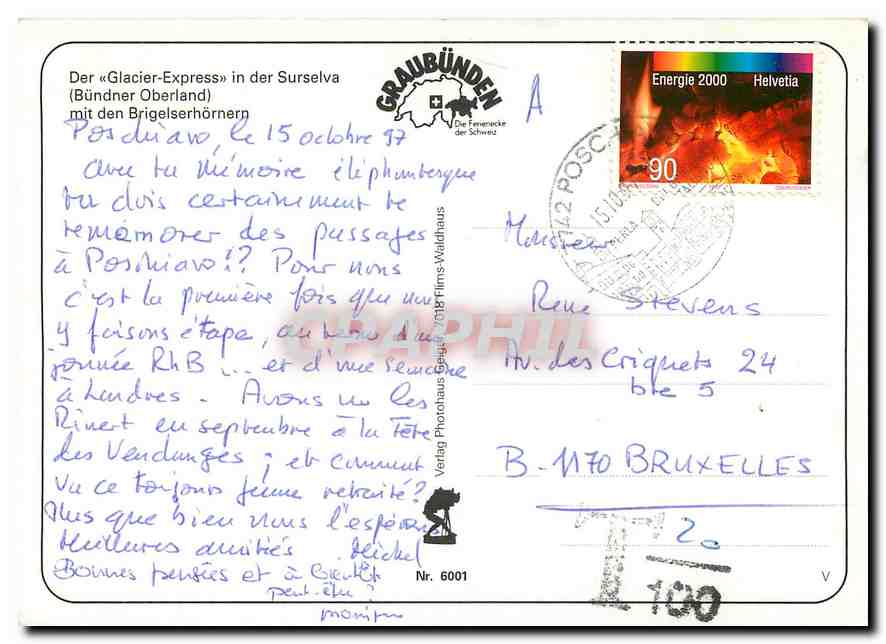 Der «Glacier-Express» in der Surselva
(Bündner Oberland)
mit den Brigelserhörnern
GRAUBÜNDEN
Die Ferienecke
der Schweiz
A
Energie 2000 Helvetia
90
Poschiavo, le 15 octobre 97
avec ta mémoire éléphantesque
tu dois certainement te
remémorer des passages
à Poschiavo!? Pour nous
c'est la première fois que nous
y faisons étape, au
journée RhB ... et d'une semaine
à Londres. Avons vu les
en septembre à la Fête
des Vendanges; et comment
va ce toujours jeune retraité?
Plus que bien nous l'espérons
Meilleures amitiés Michel
Bonnes pensées et à bientôt
peut-être?
Verlag Photohaus Geiger, 7018 Flims-Waldhaus
CPAPHIL
7742 POSCHIAVO
15.10.
Monsieur
René Stevens
Av. des Criquets 24
bte 5
B-1170 BRUXELLES
T 20
100
Nr. 6001
V